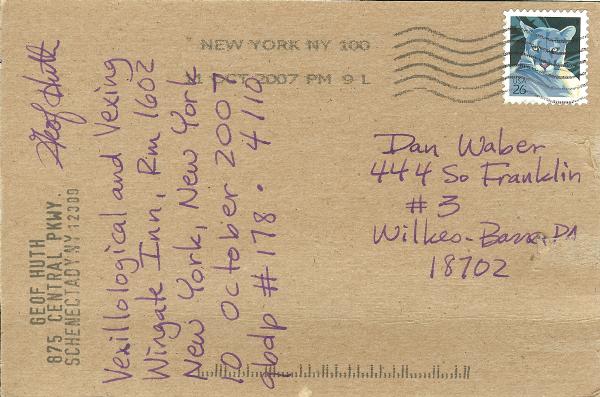 NEW YORK NY 100
1 OCT 2007 PM 9 L
USA
26
Dan Waber
444 So Franklin
# 3
Wilkes-Barre, PA
18702
Geof Huth
Vexillological and Vexing
Wingate Inn, Rm 1602
New York, New York
10 October 2007
qbdp #178. 4/10
GEOF HUTH
875 CENTRAL PKWY.
SCHENECTADY NY 12309